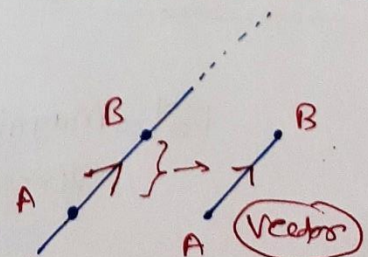 B
B
A
A
Vector